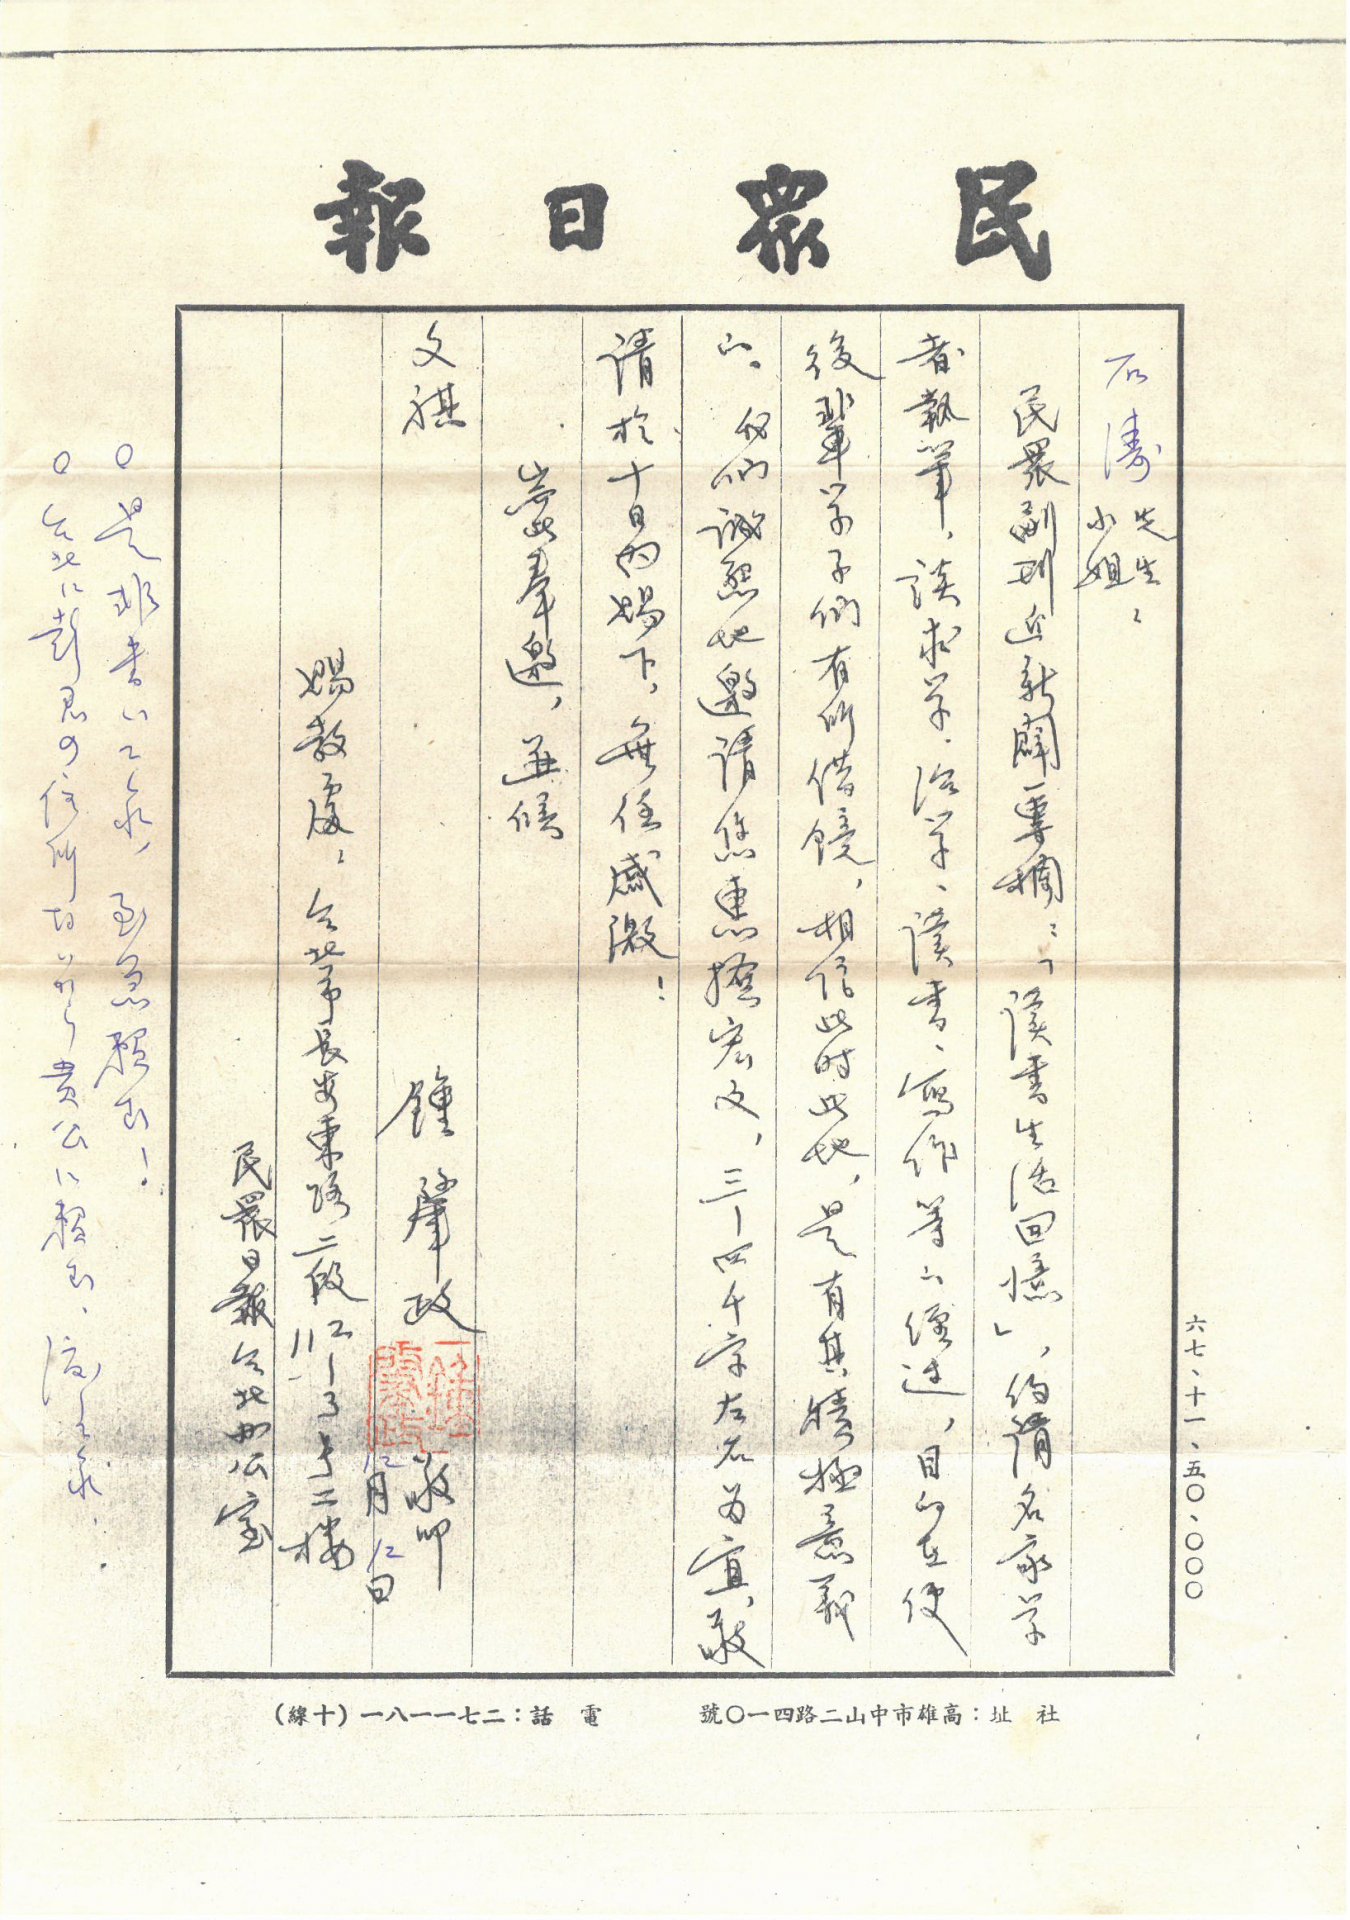 民眾日報
石濤 先生
小姐:
民眾副刊近新闢一專欄:「讀書生活回憶」,約請名家学
者執筆,談求学、治学、讀書、寫作等的經過,目的在使
後輩学子們有所借鏡,相信此时此地,是有其積極意義
的。我們誠懇地邀請您惠撰宏文,三—四千字左右為宜,敬
請於十日內賜下,無任感激!
耑此奉邀,並候
文祺
鍾肇政 敬叩
12月12日
賜教處:台北市長安東路二段 二樓
民眾日報台北办公室
○是非書いて下さい、至急頼む!
○台北に
六七、十一、五〇、〇〇〇
社 址:高雄市中山二路四一〇號
電 話:二七一一八一(十線)